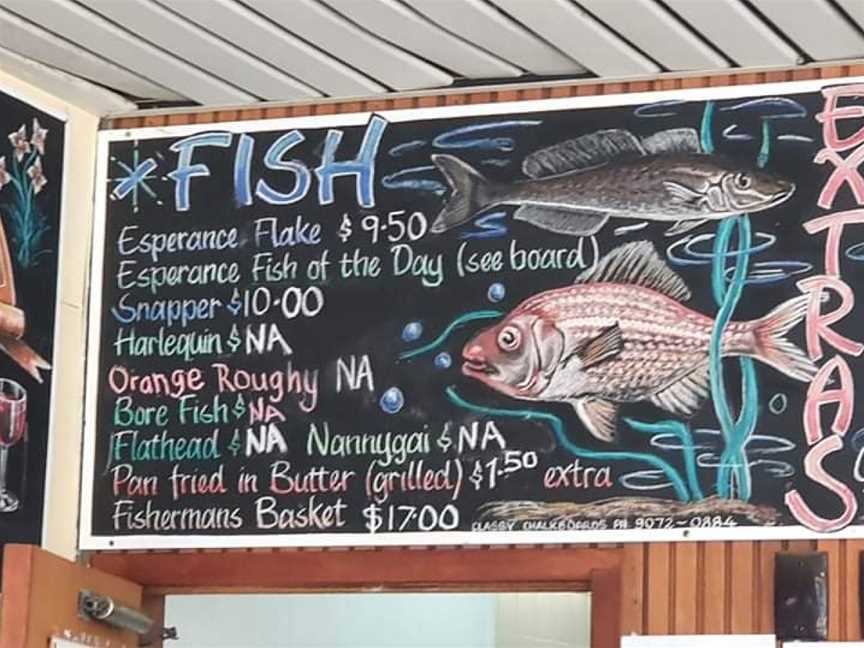 * FISH
Esperance Flake $9.50
Esperance Fish of the Day (see board)
Snapper $10.00
Harlequin $ NA
Orange Roughy NA
Bore Fish $ NA
Flathead $ NA Nannygai $ NA
Pan fried in Butter (grilled) $1.50 extra
Fishermans Basket $17.00
CLASSY CHALKBOARDS PH 9072-0884
EXTRAS